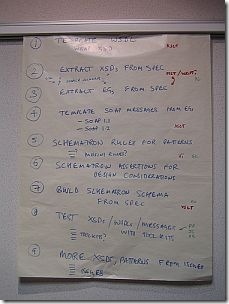 1 TEMPLATE WSDL
WHAT XSD? XSLT
2 EXTRACT XSDs FROM SPEC
XSLT/
3 EXTRACT EGs FROM SPEC
4 TEMPLATE SOAP MESSAGES FROM EGs
- SOAP 1.1
- SOAP 1.2 XSLT
5 SCHEMATRON RULES FOR PATTERNS
6 SCHEMATRON ASSERTIONS FOR
DESIGN CONSIDERATIONS
7 BUILD SCHEMATRON SCHEMA
FROM SPEC XSLT
8 TEST XSDs/WSDLs/MESSAGES
WITH TOOLKITS
TOOLKITS?
9 MORE XSDs/PATTERNS FROM ISSUES
ISSUES